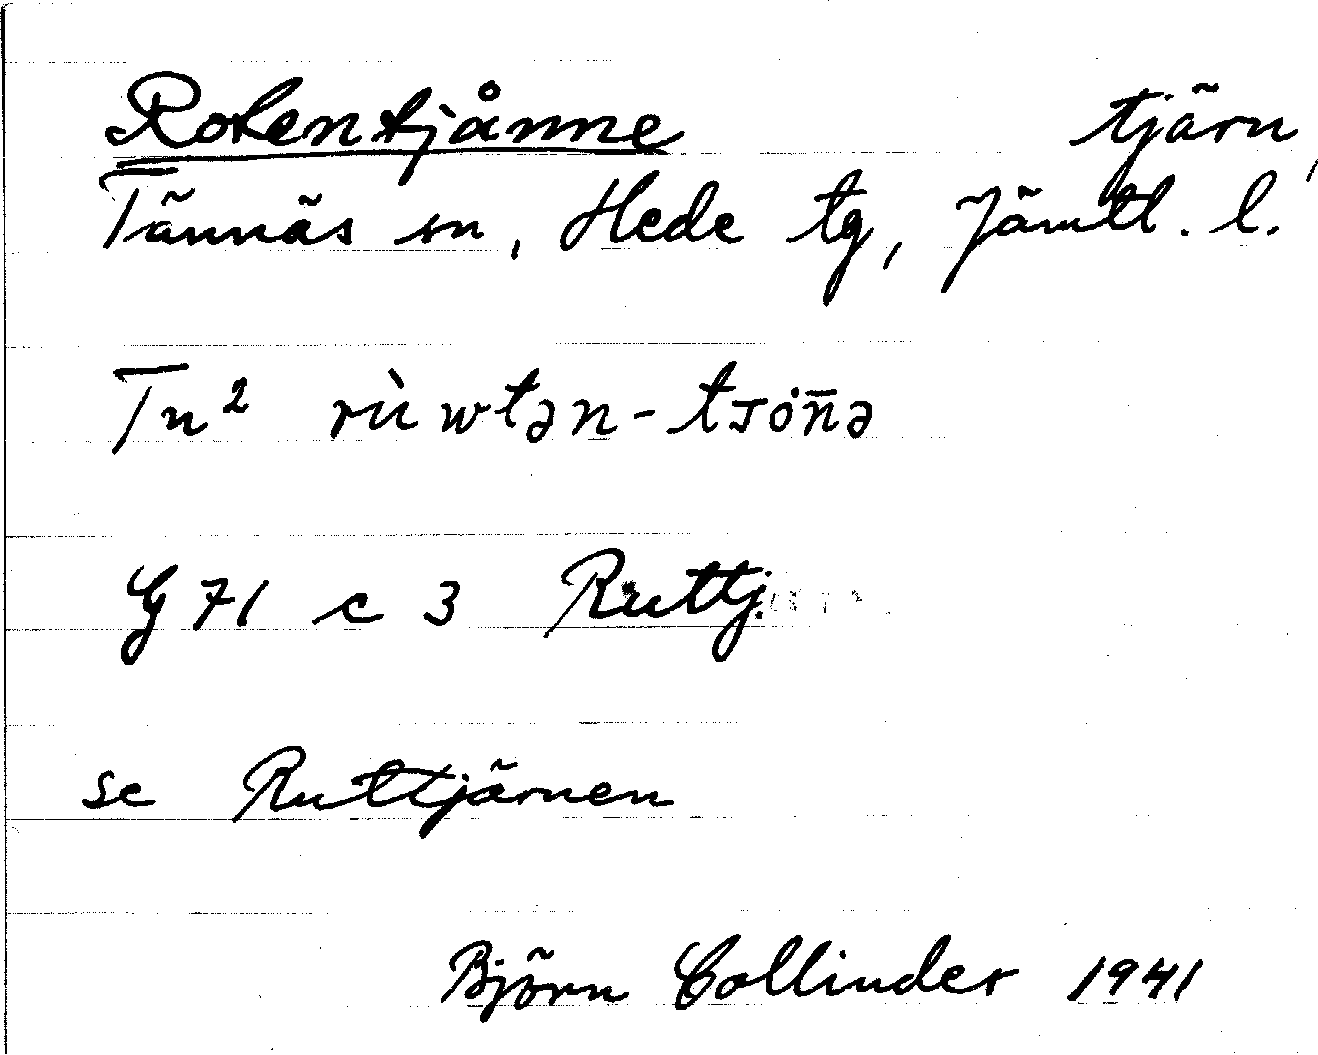 Rotentjånne tjärn,
Tännäs sn, Hede tg, Jämtl. l.
Tn² rùwtən-tsȯn̄ə
G 71 c 3 Ruttj.
se Ruttjärnen
Björn Collinder 1941